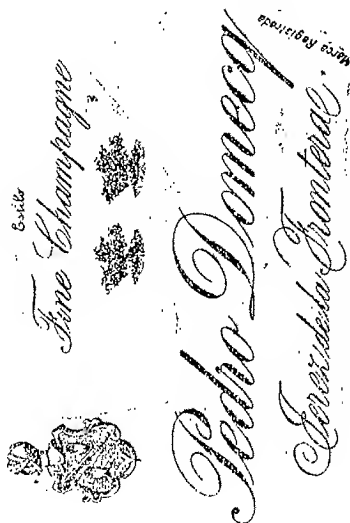 Estilo
Fine Champagne
Pedro Domecq
Marca Registrada
Jerez de la Frontera